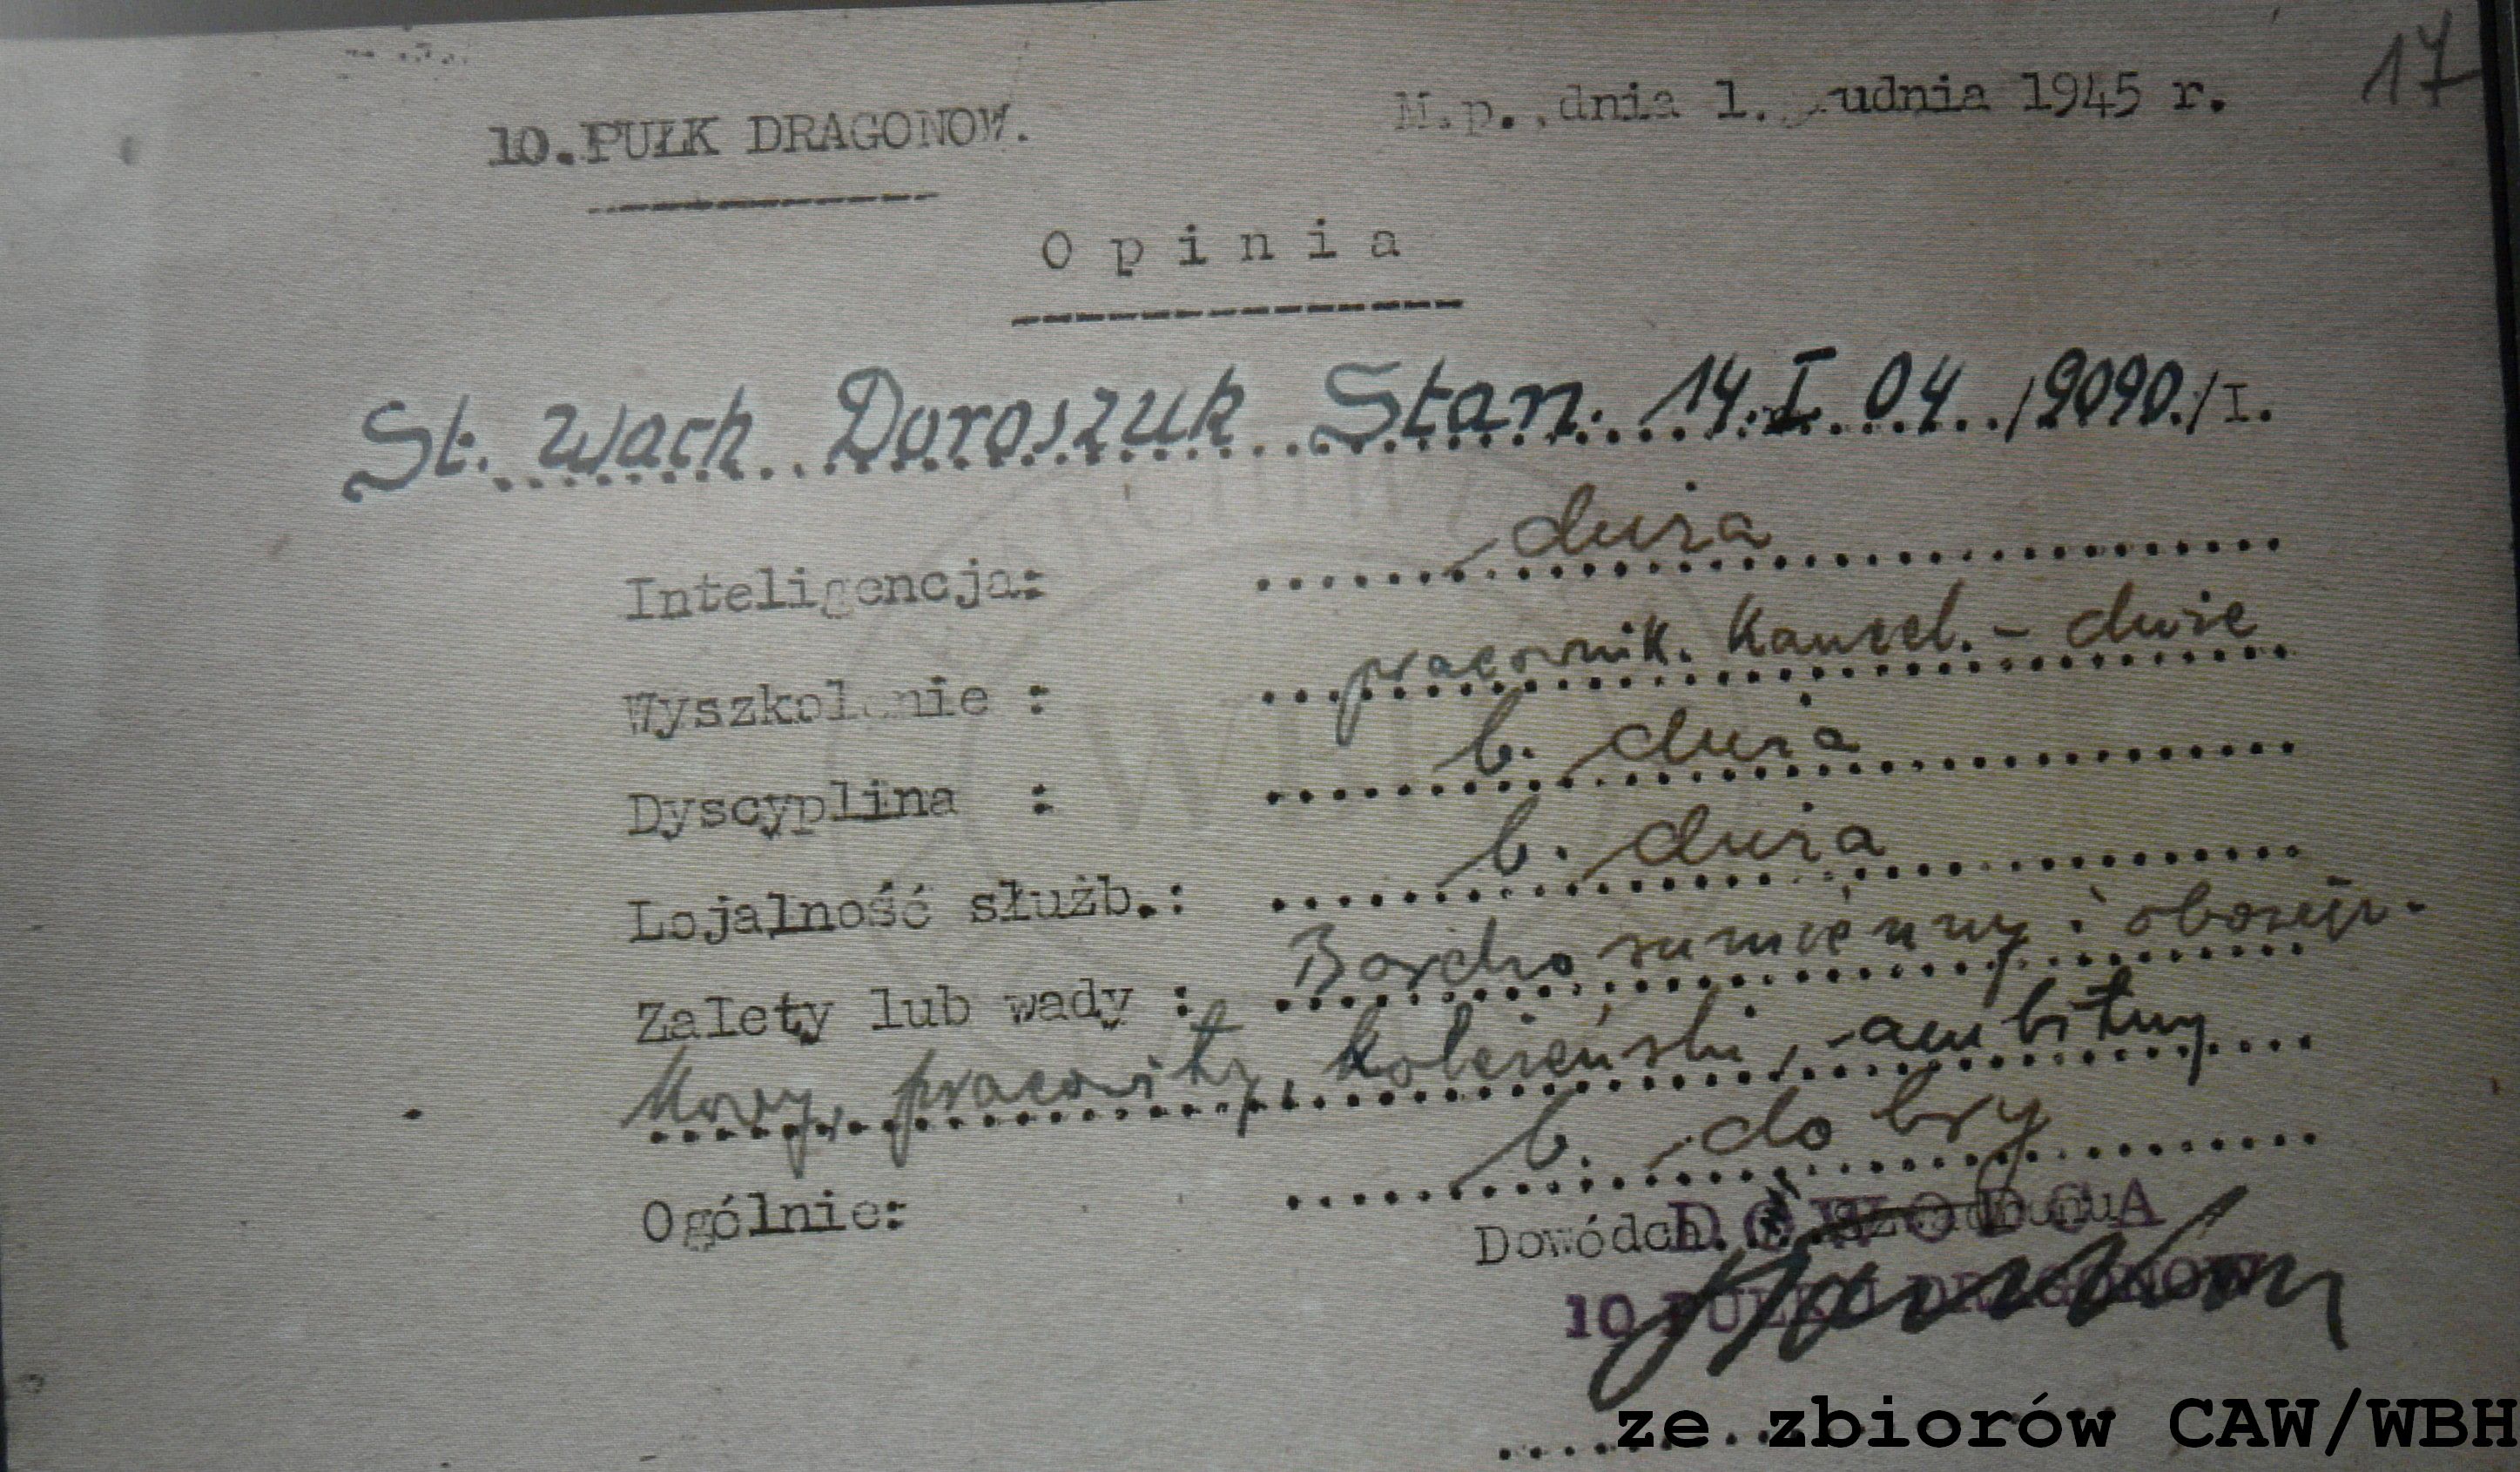 17
10.PUŁK DRAGONOW.
M.p.,dnia 1. udnia 1945 r.
Opinia
St. Wach. Doroszuk Stan. 14.I.04. /9090./I.
Inteligencja: duża
Wyszkolenie : pracownik. Kancel. - duże
Dyscyplina : b. duża
Lojalność służb.: b. duża
Zalety lub wady : Bardzo sumienny i
pracowity, koleżeński, ambitny
Ogólnie: b. dobry
Dowódca Szwadronu
DOWÓDCA
10 PUŁKU DRAGONOW
ze zbiorów CAW/WBH